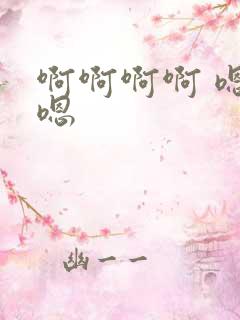 啊啊啊啊 嗯
嗯
幽一一